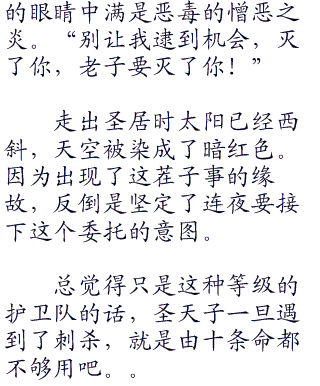 的眼睛中满是恶毒的憎恶之
炎。“别让我逮到机会，灭
了你，老子要灭了你！”
走出圣居时太阳已经西
斜，天空被染成了暗红色。
因为出现了这茬子事的缘
故，反倒是坚定了连夜要接
下这个委托的意图。
总觉得只是这种等级的
护卫队的话，圣天子一旦遇
到了刺杀，就是由十条命都
不够用吧。。